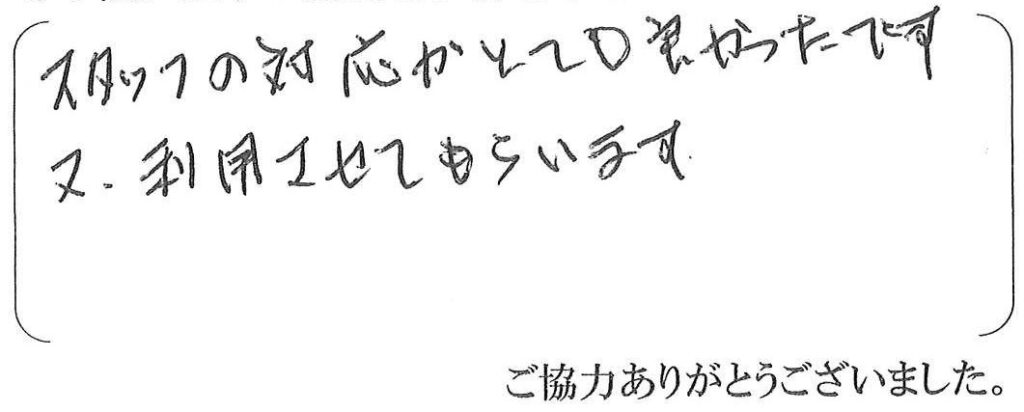 スタッフの対応がとても良かったです
又、利用させてもらいます。
ご協力ありがとうございました。